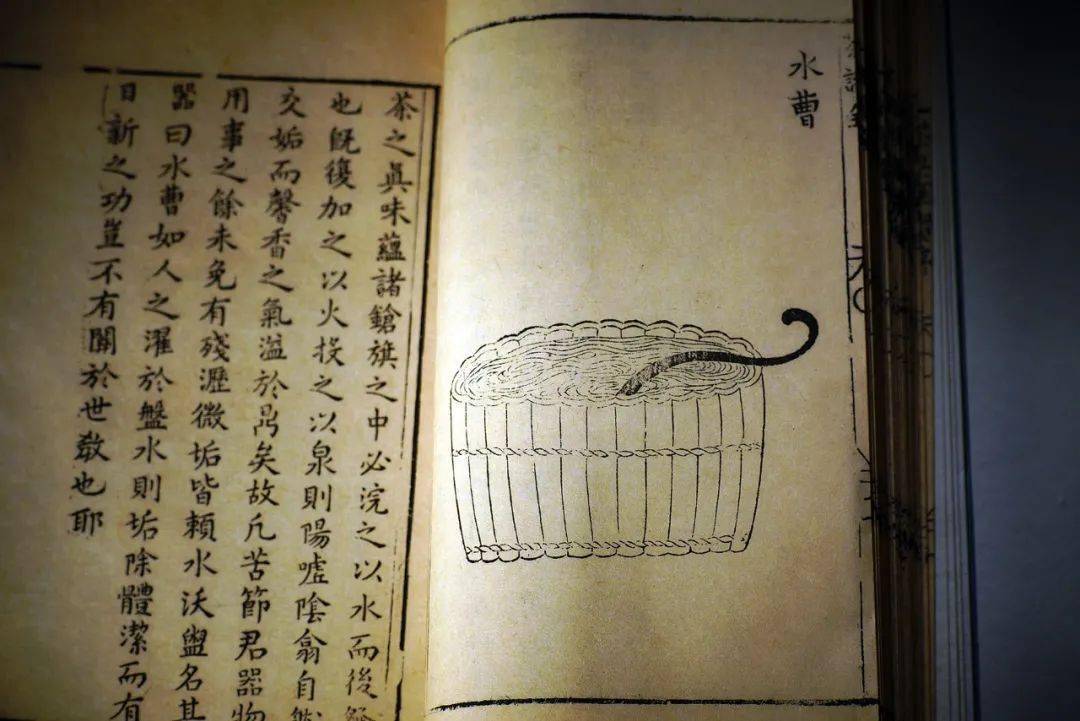 水曹
茶之眞味蘊諸鎗旗之中必浣之以水而後發
也旣復加之以火投之以泉則陽噓陰翕自然
交姤而馨香之氣溢於鼎矣故凡苦節君器物
用事之餘未免有殘瀝微垢皆賴水沃盥名其
器曰水曹如人之濯於盤水則垢除體潔而有
日新之功豈不有關於世敎也耶